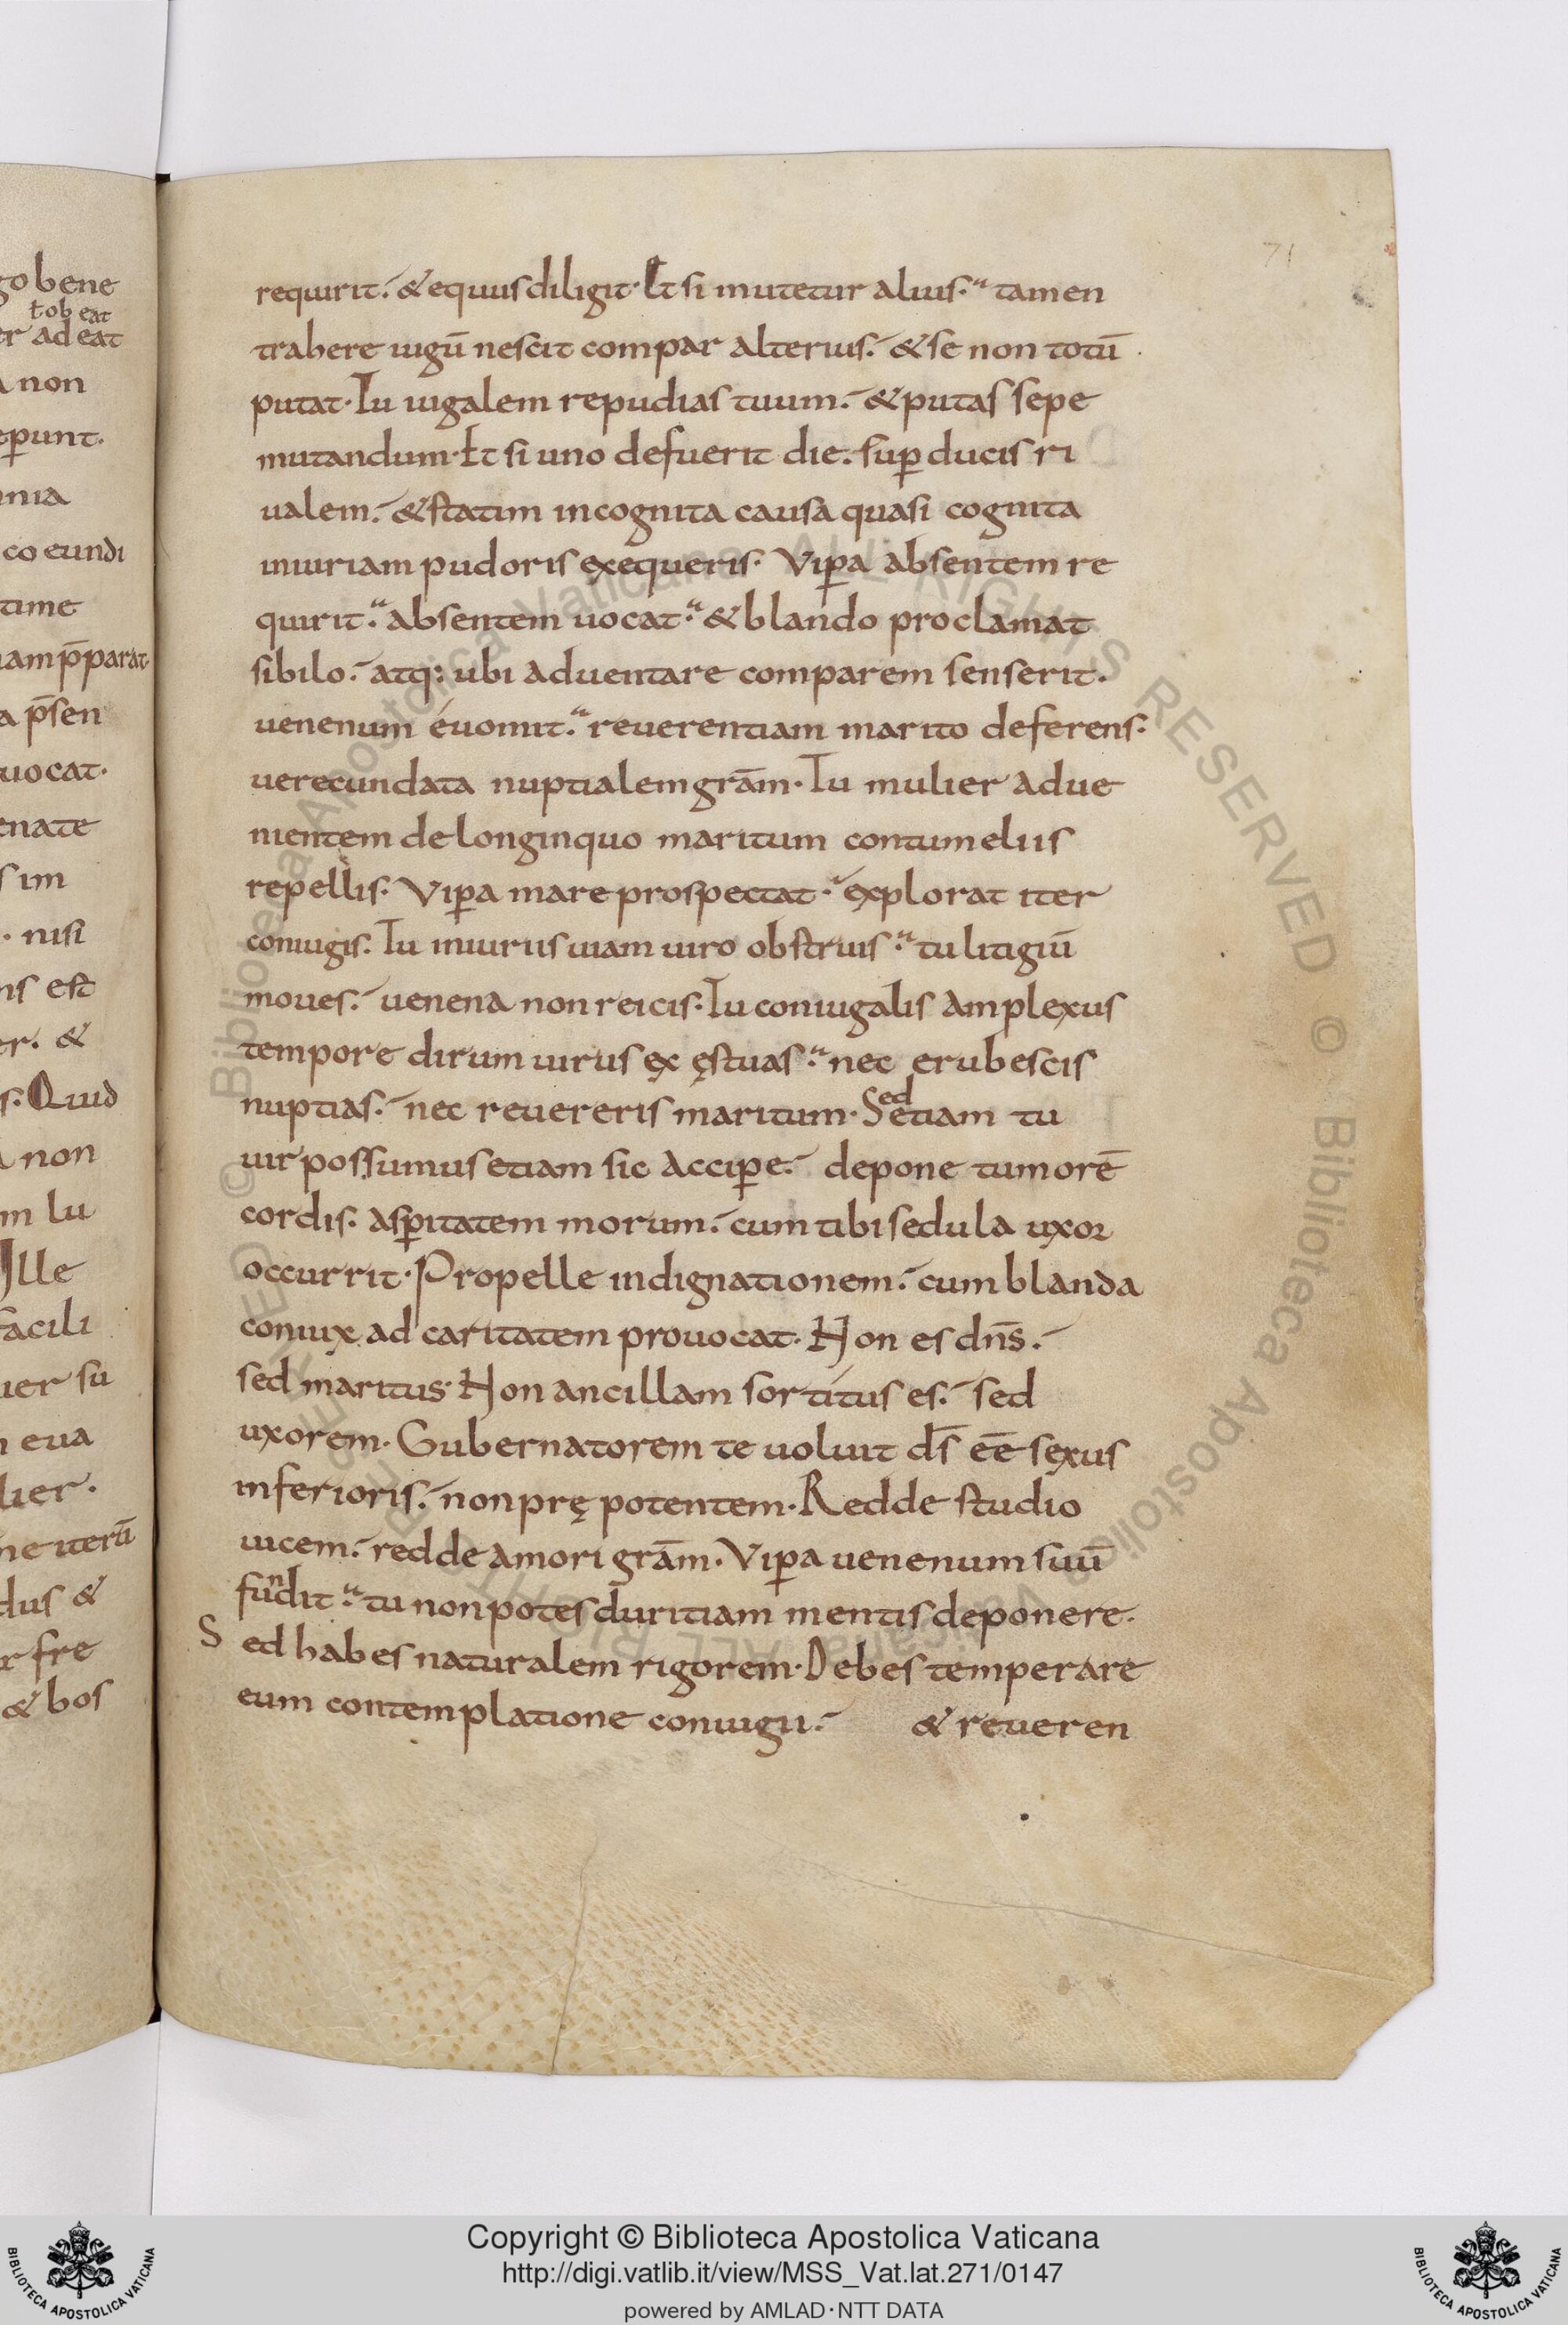 go bene
ł ob eat
er ad eat
a non
ep̲unt.
nia
co eundi
time
am p̄parat
a p̄sen
uocat.
enate
s im
. nisi
ns est
er. &
s. Quid
a non
m lu
Ille
facili
uer su
n eua
lier.
ne iterū
dus &
r fre
& bos
71
requirit. & equus diligit. Et si mutetur alius. tamen
trahere iugū nescit compar alterius. & se non totū
putat. Tu iugalem repudias tuum. & putas sepe
mutandum. Et si uno defuerit die. sup̲ ducis ri
ualem. & statim incognita causa quasi cognita
iniuriam pudoris exequeris. Vip̲a absentem re
quirit. absentem uocat. & blando proclamat
sibilo. atq: ubi aduentare comparem senserit.
uenenum éuomit. reuerentiam marito deferens.
uerecundata nuptialem grām. Tu mulier adue
nientem de longinquo maritum contumeliis
repellis. Vip̲a mare prospectat. explorat iter
coniugis. Tu iniuriis uiam uiro obstruis. tu litigiū
moues. uenena non reicis. Tu coniugalis amplexus
tempore dirum uirus ex ęstuas. nec erubescis
nuptias. nec reuereris maritum. Sed etiam tu
uir possumus etiam sic accip̲e. depone tumorē
cordis. asp̲itatem morum. cum tibi sedula uxor
occurrit. Propelle indignationem. cum blanda
coniux ad caritatem prouocat. Non es dn̄s.
sed maritus. Non ancillam sortitus es. sed
uxorem. Gubernatorem te uoluit d̄s eē sexus
inferioris. non prę potentem. Redde studio
uicem. redde amori grām. Vip̲a uenenum suū
fundit. tu non potes duritiam mentis deponere.
Sed habes naturalem rigorem. Debes temperare
eum contemplatione coniugii. & reueren
© Biblioteca Apostolica Vaticana ALL RIGHTS RESERVED
Copyright © Biblioteca Apostolica Vaticana
http://digi.vatlib.it/view/MSS_Vat.lat.271/0147
powered by AMLAD·NTT DATA
BIBLIOTECA APOSTOLICA VATICANA
BIBLIOTECA APOSTOLICA VATICANA